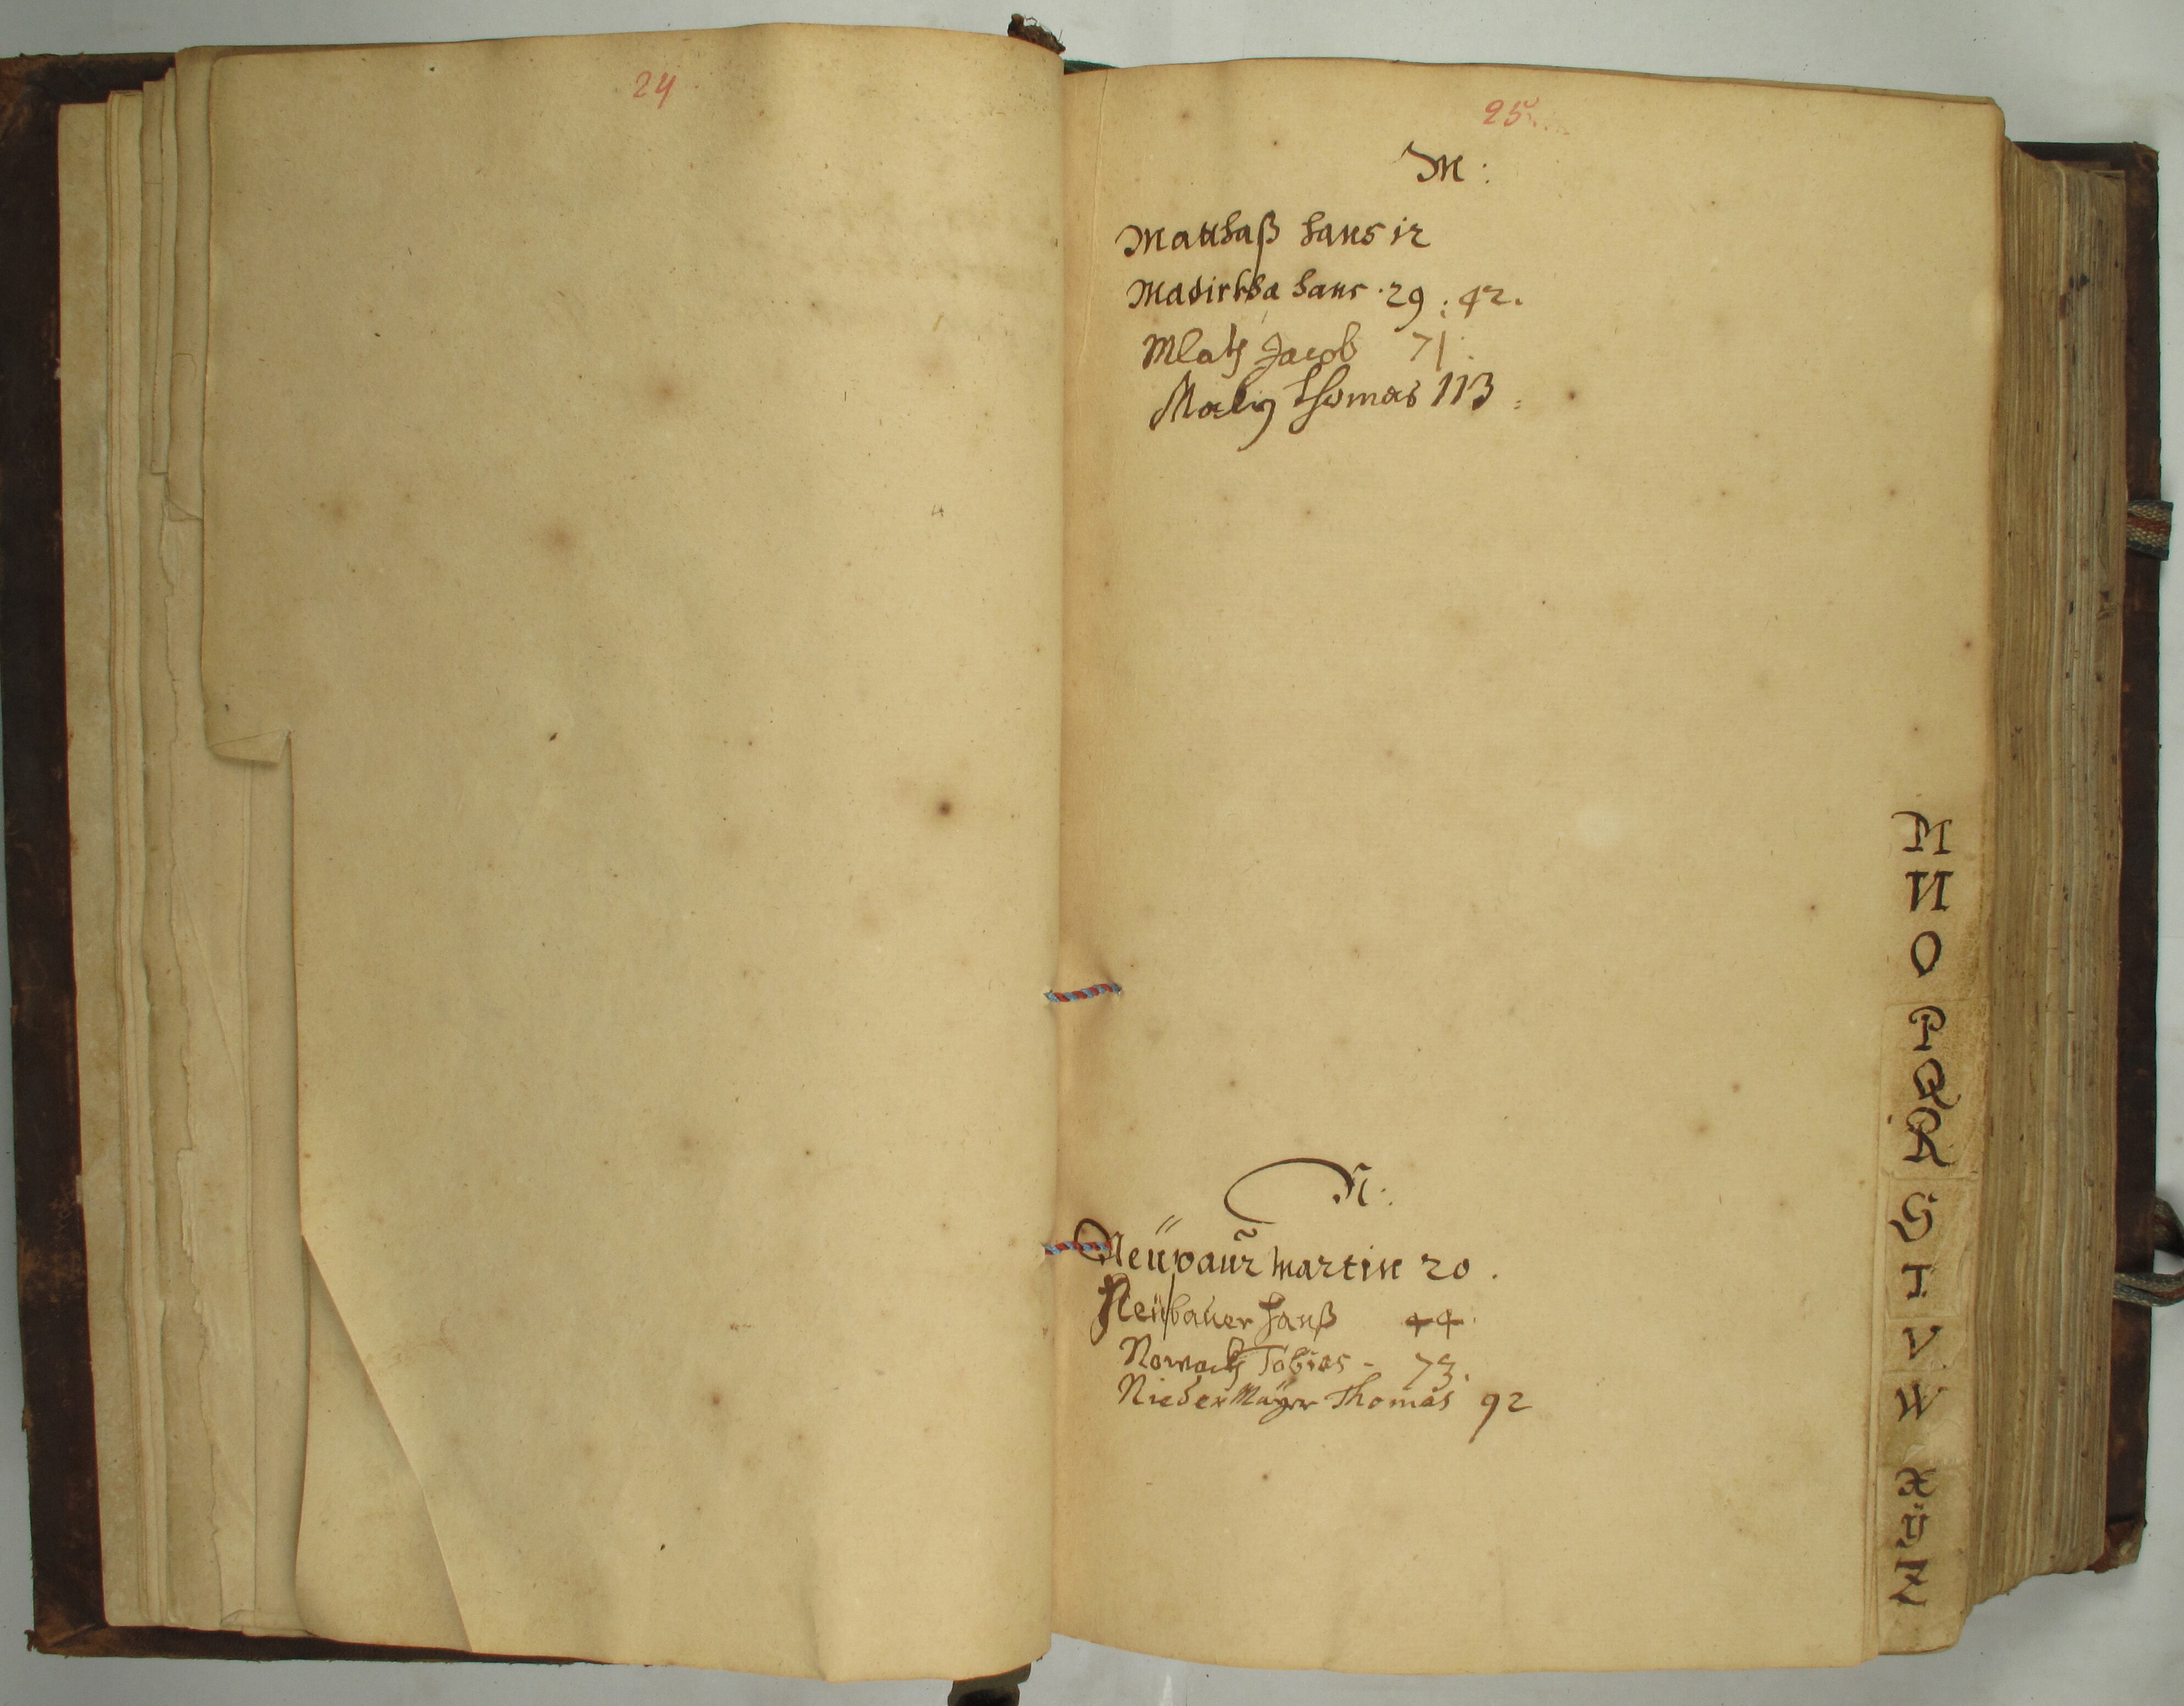 24
25
M:
Matthaß hans 12
Madirkha hans 29: 42.
Mlatz Jacob 71.
Maly Thomas 113
N:
Neüpaur Martin 20.
Neübauer Hanß 44.
Nowack Tobias - 73.
NiederMayer Thomas 92
M
N
O
P
Q
R
S
T
V
W
X
Ÿ
Z